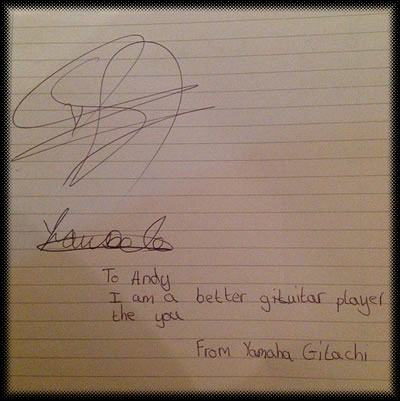 To Andy
I am a better gituitar player
the you
From Yamaha Gitachi